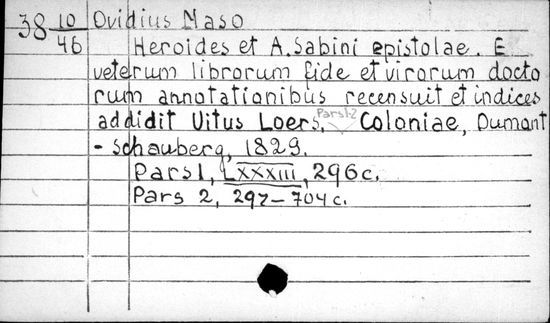 38 10/46 Ovidius Naso
Heroides et A. Sabini epistolae. E
veterum librorum fide et virorum docto
rum annotationibus recensuit et indices
addidit Vitus Loers, Pars 1-2 Coloniae, Dumont
- Schauberg, 1829.
Pars 1, LXXXIII, 296 c.
Pars 2, 297 - 704 c.